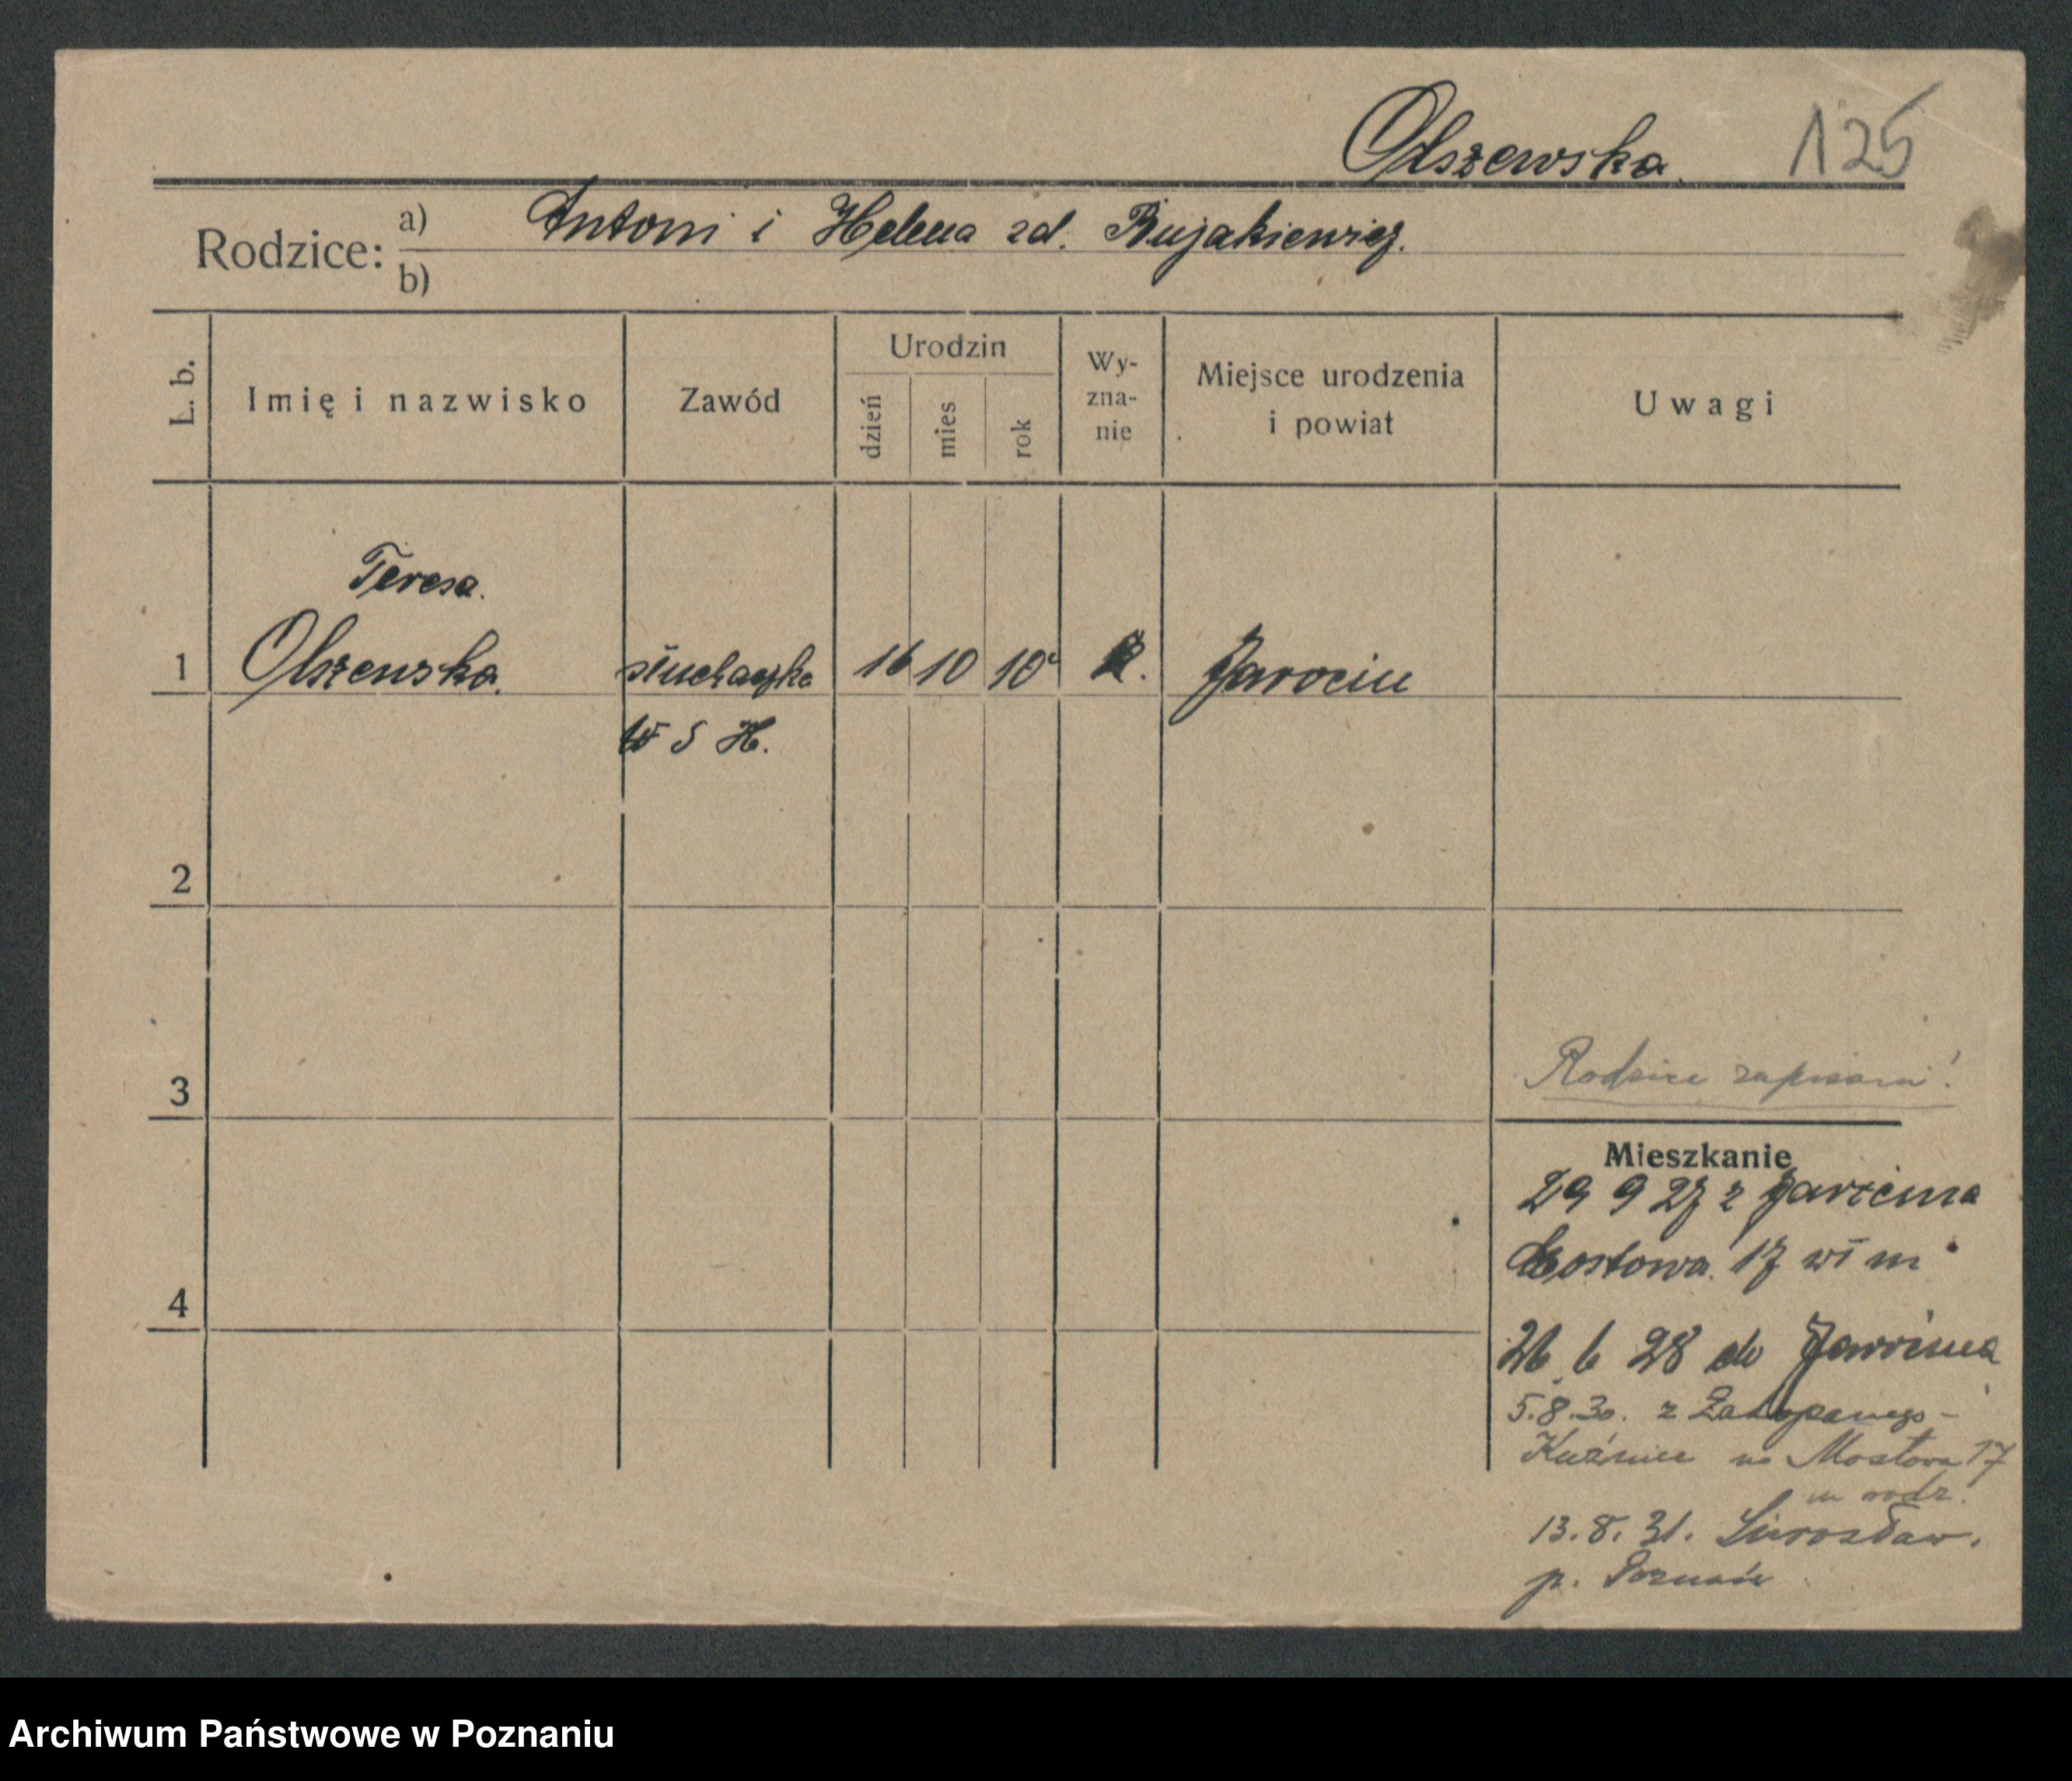 Olszewska. 125
Rodzice: a) Antoni i Helena zd. Bujakiewicz.
b)
L. b. Imię i nazwisko Zawód Urodzin dzień mies rok Wy-zna-nie Miejsce urodzenia i powiat Uwagi
Teresa.
1 Olszewska. słuchaczka 16 10 10 Jarocin
W S H.
2
3
Rodzice zapisani!
Mieszkanie
4
29 9 27 z
Mostowa 17 wł m
26 6 28 do
5.8.30. z Zakopanego-
Kuźnice na Mostowa 17
13.8.31.
p. Poznań
Archiwum Państwowe w Poznaniu